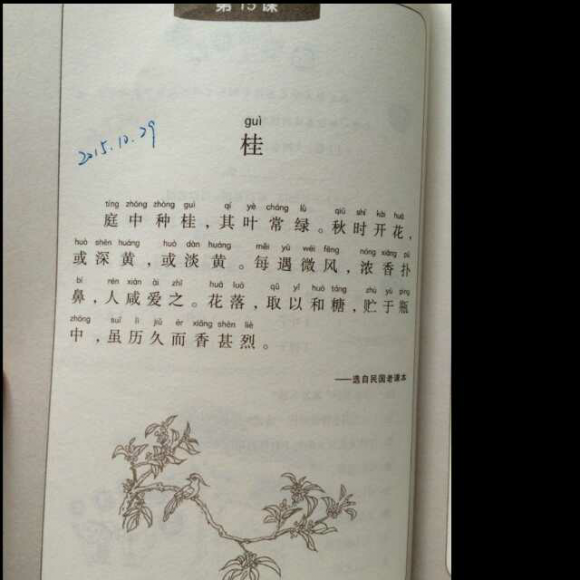 第15课
2015.10.29
guì
桂
tíng zhōng zhòng guì qí yè cháng lǜ qiū shí kāi huā
庭中种桂，其叶常绿。秋时开花，
huò shēn huáng huò dàn huáng měi yù wēi fēng nóng xiāng pū
或深黄，或淡黄。每遇微风，浓香扑
bí rén xián ài zhī huā luò qǔ yǐ huò táng zhù yú píng
鼻，人咸爱之。花落，取以和糖，贮于瓶
zhōng suī lì jiǔ ér xiāng shèn liè
中，虽历久而香甚烈。
——选自民国老课本